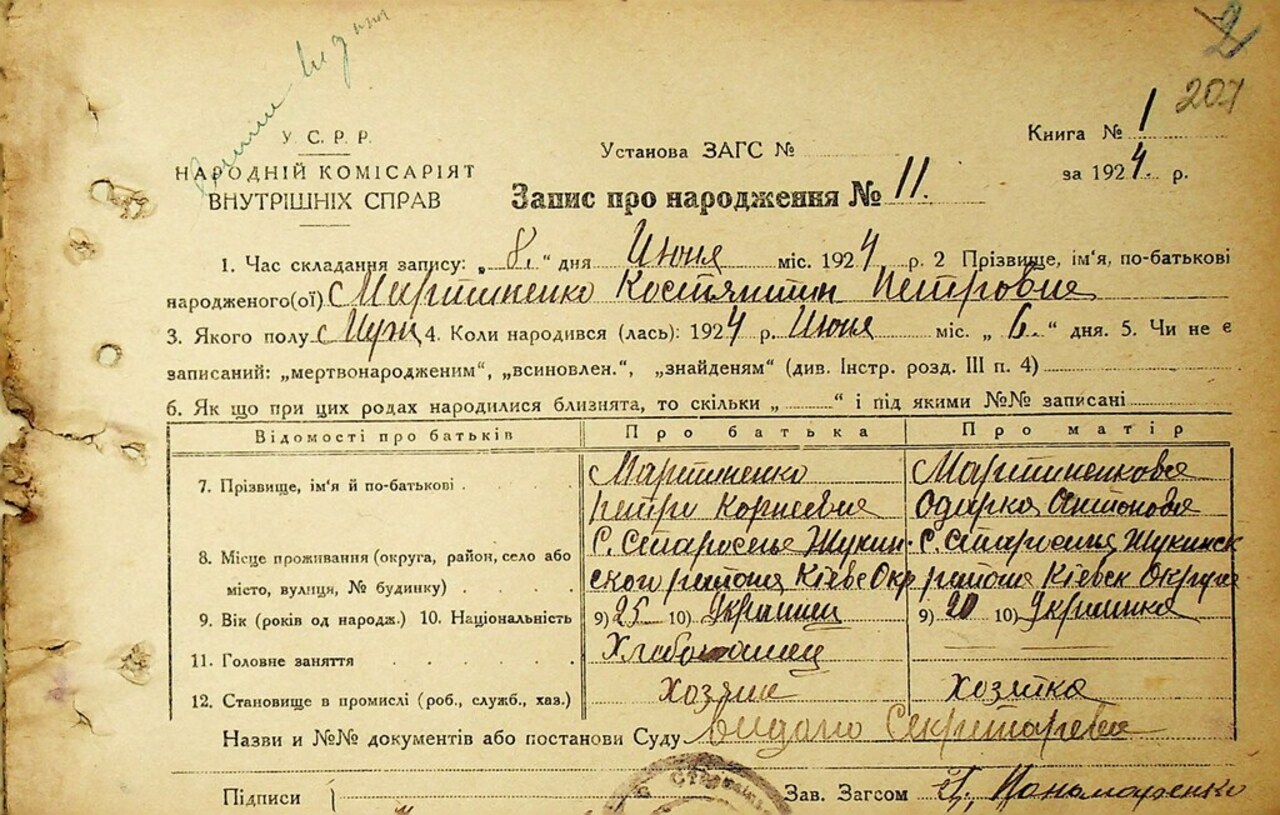 207
У. С. Р. Р.
НАРОДНІЙ КОМІСАРІЯТ
ВНУТРІШНІХ СПРАВ
Установа ЗАГС №
Книга № 1
за 1924 р.
Запис про народження № 11.
1. Час складання запису: „ 8. “ дня Июня міс. 1924 р. 2 Прізвище, ім'я, по-батькові
народженого(ої) Мартиненко Костянтин Петровив
3. Якого полу Муж 4. Коли народився (лась): 1924 р. Июня міс. „ 6. “ дня. 5. Чи не є
записаний: „мертвонародженим“, „всиновлен.“, „знайденям“ (див. Інстр. розд. III п. 4)
6. Як що при цих родах народилися близнята, то скільки „ “ і під якими №№ записані
Відомості про батьків Про батька Про матір
7. Прізвище, ім'я й по-батькові Мартиненко Мартиненкова
Петро Корнеевив Одарка Антонова
8. Місце проживання (округа, район, село або С. Староселье Жукин- С. Жукинск
місто, вулиця, № будинку) ского района Кіевс Окр района Кіевск Округа
9. Вік (років од народж.) 10. Національність 9) 25 10) Украинец 9) 20 10) Украинка
11. Головне заняття
12. Становище в промислі (роб., служб., хаз.) Хозяин Хозяйка
Назви и №№ документів або постанови Суду
Підписи Зав. Загсом Пономаренко